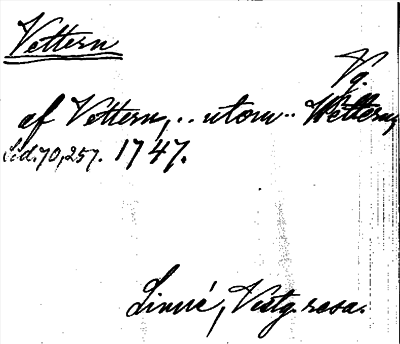 Vettern
Vg.
af Vettern,.. utom.. Wettern,
Sid. 70, 257. 1747.
Linné, Vestg. resa.